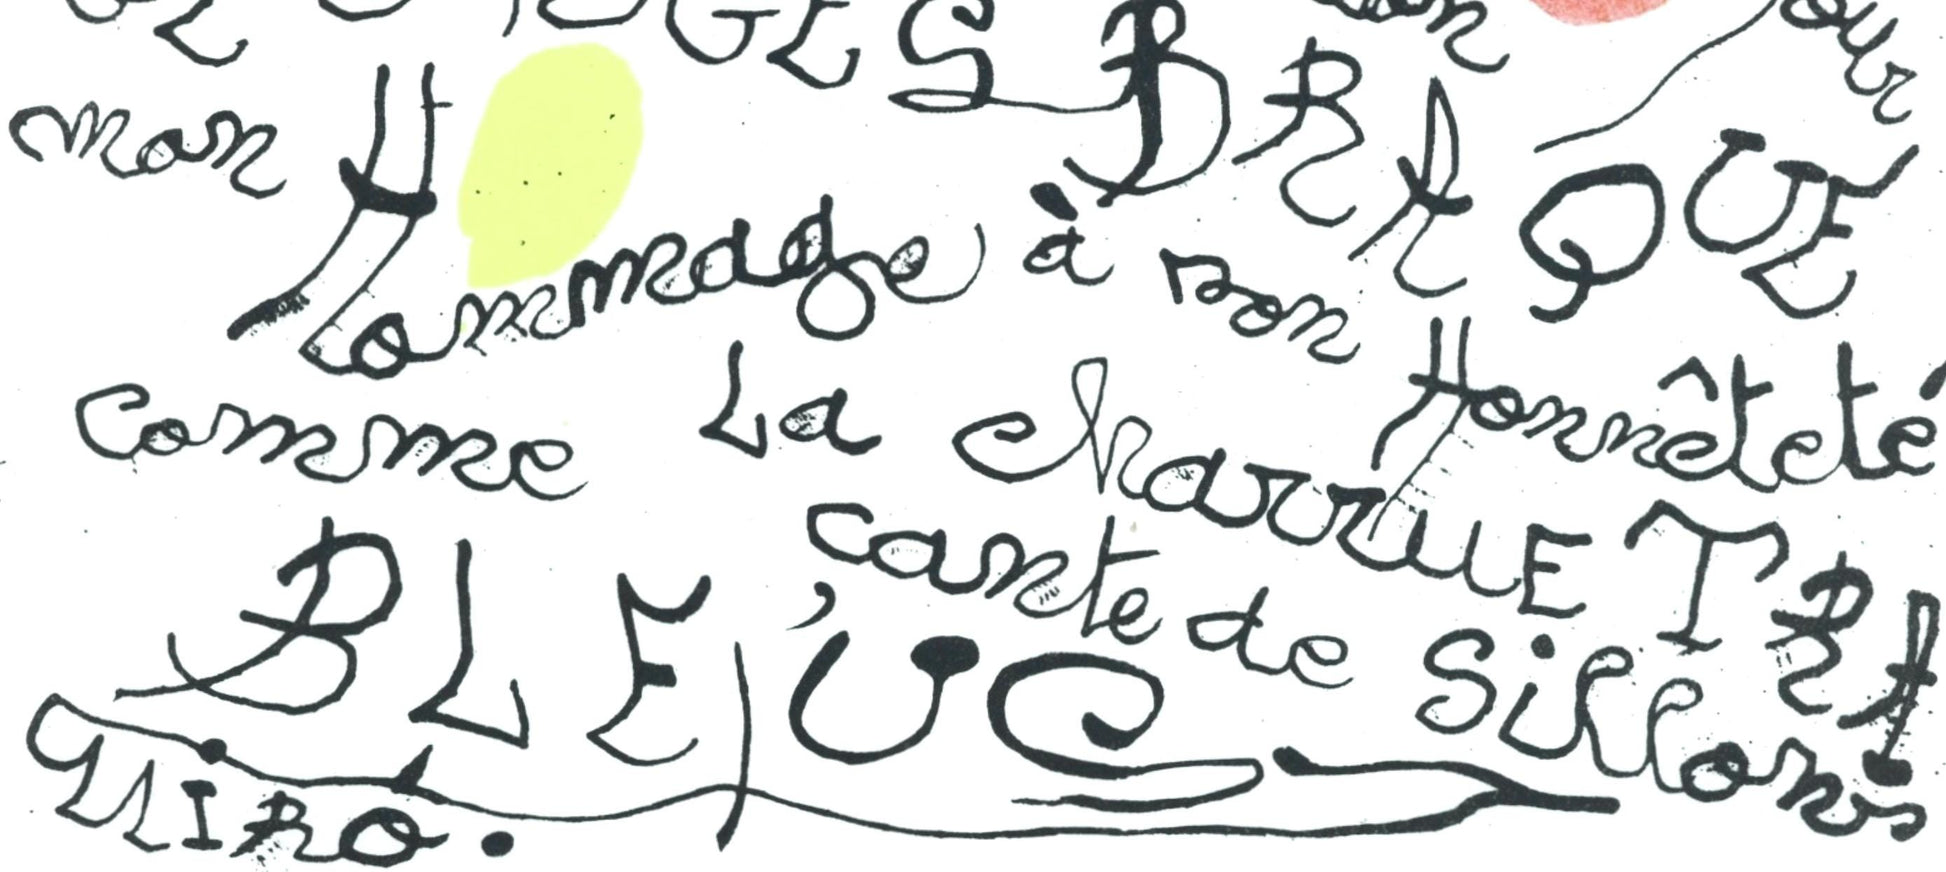 GES BRAQUE
mon Hommage à son Honnêteté
comme La charrUE TRA
çante de Sillons
BLEUS
MIRO.